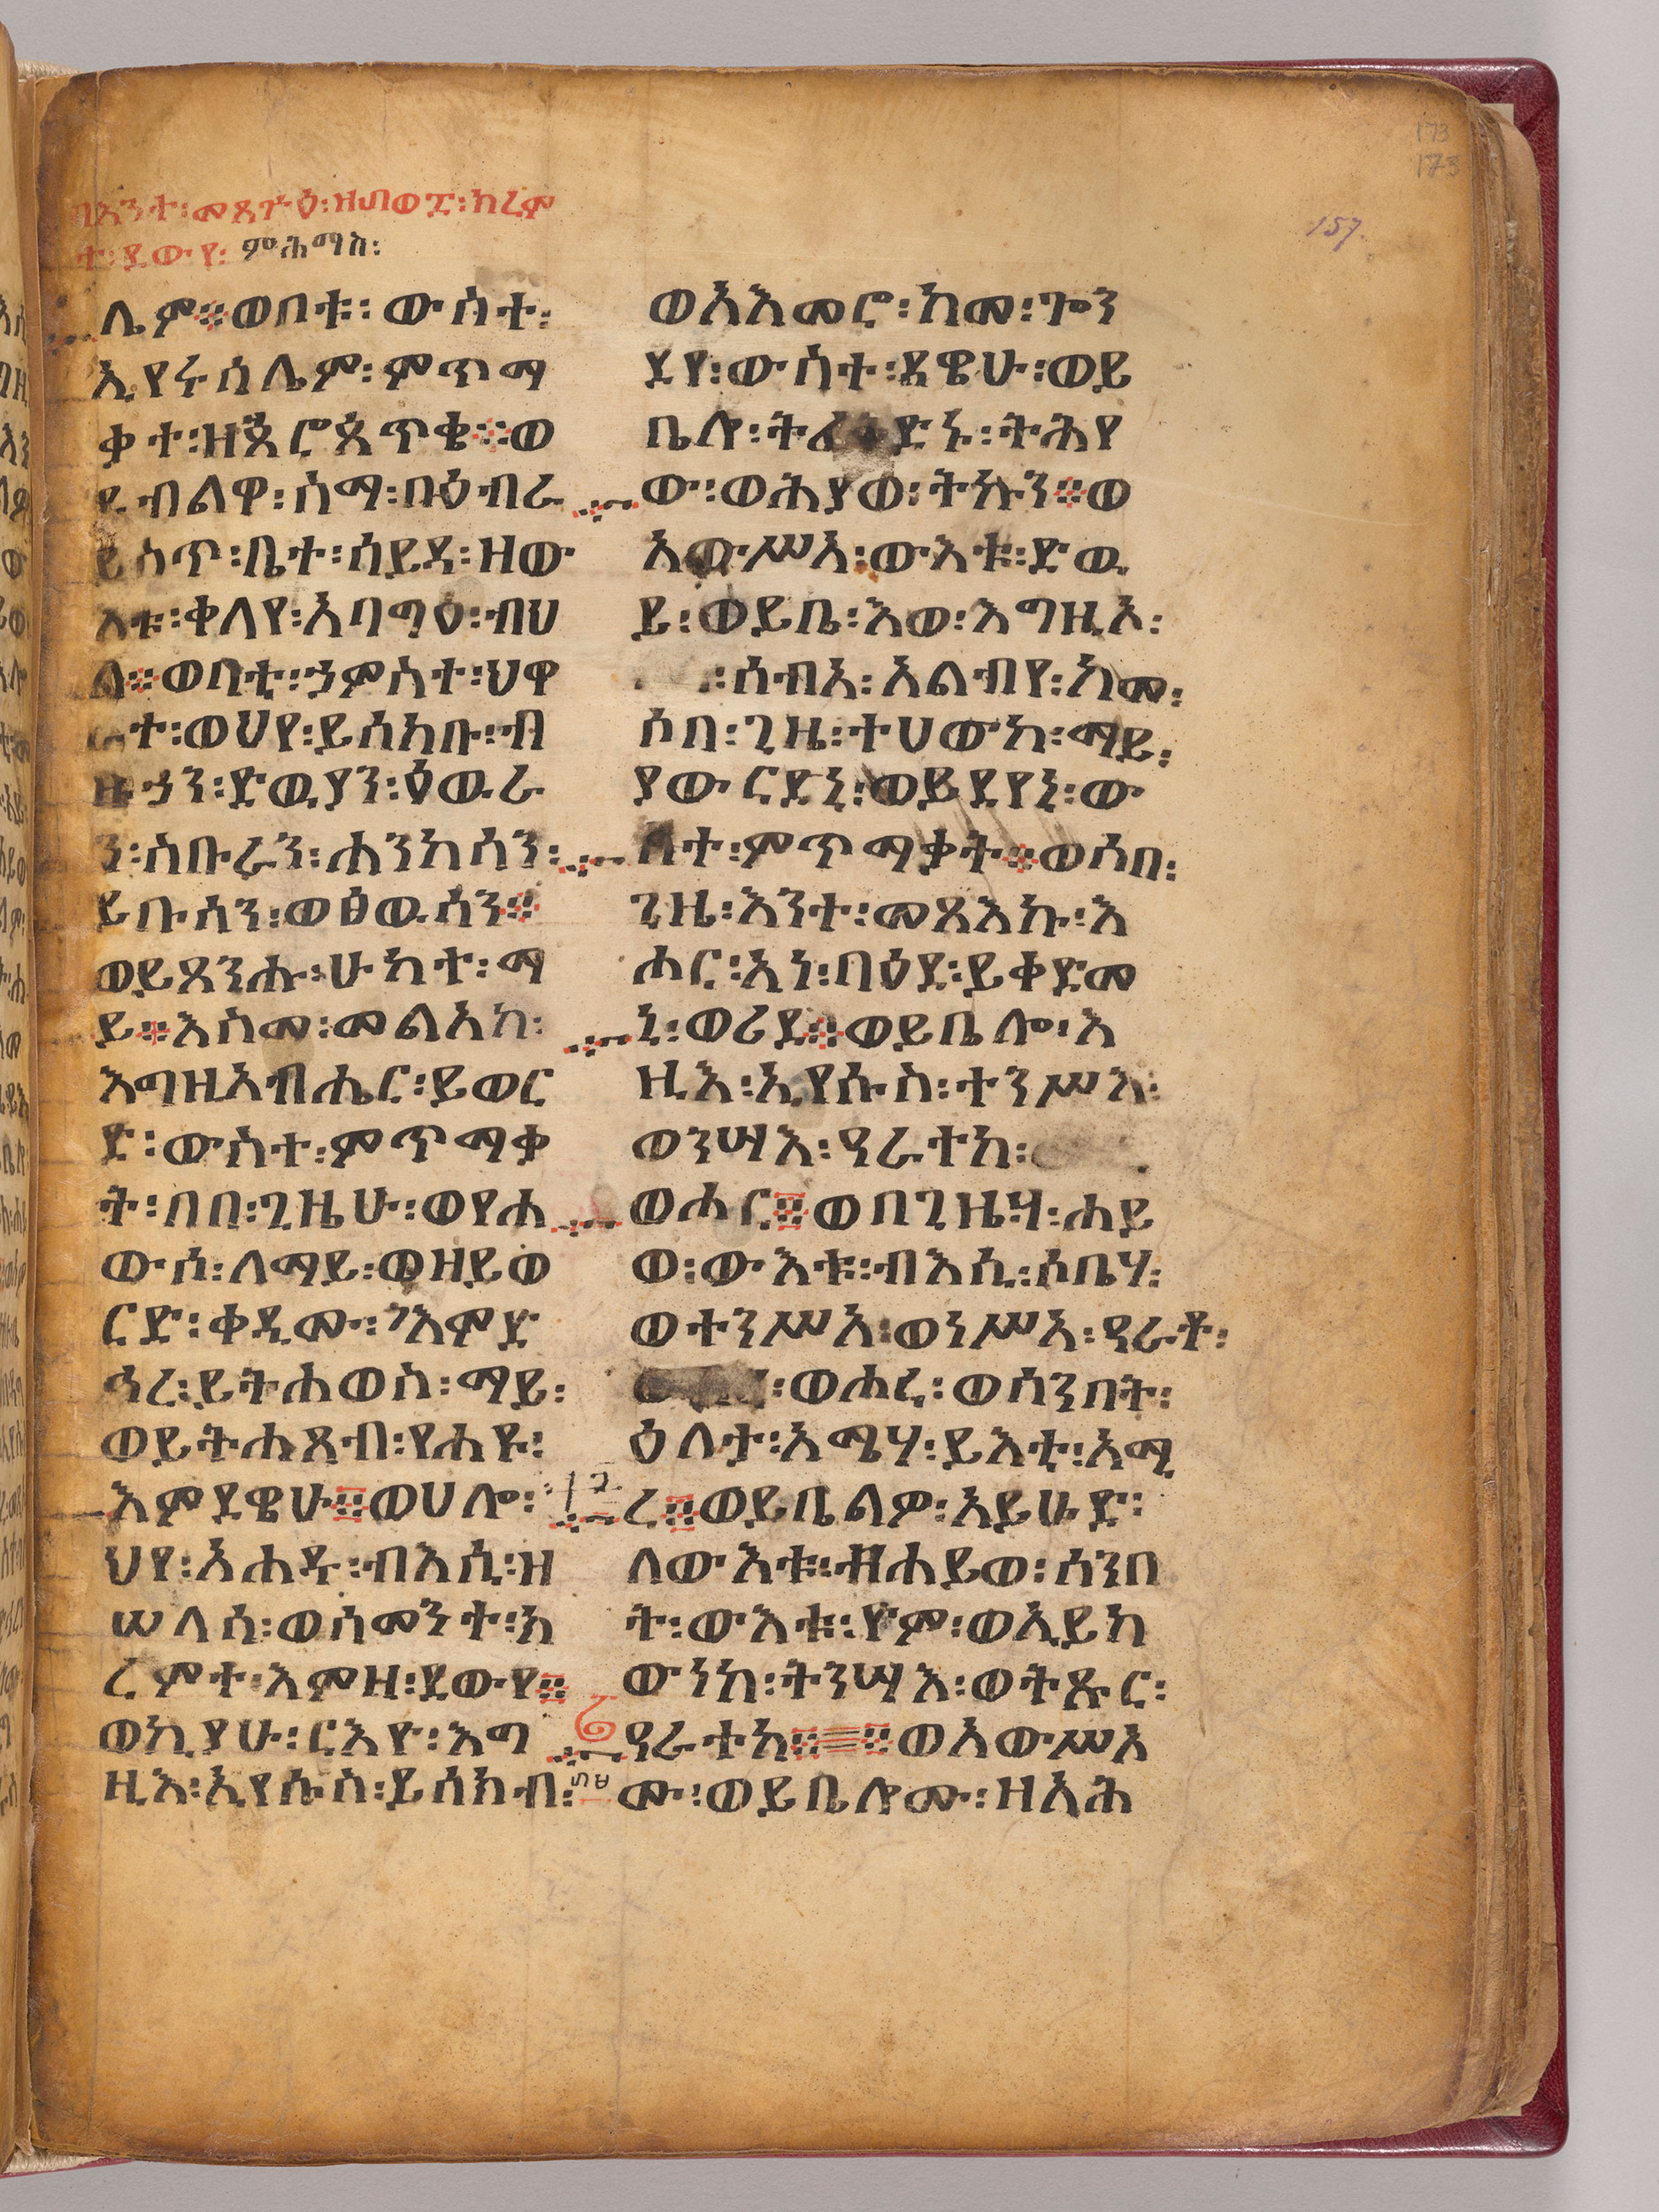 በእንተ፡መጻጕዕ፡ዘ፴ወ፰፡ክረም
ት፡ደውየ፡ ምሕማስ፡
173
173
157.
ሌም፨ወቦቱ፡ውስተ፡
ኢየሩሳሌም፡ምጥማ
ቃተ፡ዘጰሮጳጥቄ፨ወ
ይብልዋ፡ስማ፡በዕብራ
ይስጥ፡ቤተ፡ሳይዳ፡ዘው
እቱ፡ቀላየ፡አባግዕ፡ብህ
ል፨ወባቲ፡ኃምስተ፡ህዋ
ተ፡ወህየ፡ይሰክቡ፡ብ
ዙኃን፡ድዉያን፡ዕዉራ
ን፡ስቡራን፡ሐንካሳን፡
ይቡሳን፡ወፅዉሳን፨
ወይጸንሑ፡ሁከተ፡ማ
ይ፨እስመ፡መልአከ፡
እግዚአብሔር፡ይወር
ድ፡ውስተ፡ምጥማቃ
ት፡በበ፡ጊዜሁ፡ወየሐ
ውስ፡ለማይ፡ወዘይወ
ርድ፡ቀዲሙ፡እምድ
ኅረ፡ይትሐወስ፡ማይ፡
ወይትሐጸብ፡የሐዩ፡
እምደዌሁ፨ወሀሎ፡
ህየ፡አሐዱ፡ብእሲ፡ዘ
ሠላሳ፡ወሰመንተ፡ክ
ረምተ፡እምዘ፡ደውየ፨
ወኪያሁ፡ርእዮ፡እግ
ዚእ፡ኢየሱስ፡ይሰክብ፡
ወአእመሮ፡ከመ፡ጐን
ደየ፡ውስተ፡ደዌሁ፡ወይ
ቤሎ፡ትፈቅድኑ፡ትሕየ
ው፡ወሕያወ፡ትኩን፨ወ
አውሥአ፡ውእቱ፡ድዉ
ይ፡ወይቤ፡እወ፡እግዚኦ፡
፡ሰብአ፡አልብየ፡ከመ፡
ሶበ፡ጊዜ፡ተሀውከ፡ማይ፡
ያውርደኒ፡ወይደየኒ፡ው
ስተ፡ምጥማቃት፨ወሶበ፡
ጊዜ፡እንተ፡መጻእኩ፡እ
ሐር፡አነ፡በዕደ፡ይቀድመ
ኒ፡ወሪደ፨ወይቤሎ፡እ
ዚእ፡ኢየሱስ፡ተንሥእ፡
ወንሣእ፡ዓራተከ፡
ወሐር፨ወበጊዜሃ፡ሐይ
ወ፡ውእቱ፡ብእሲ፡ሶቤሃ፡
ወተንሥአ፡ወነሥአ፡ዓራቶ፡
፡ወሖረ፡ወሰንበት፡
ዕለታ፡አሜሃ፡ይእቲ፡አሚ
ረ፨ወይቤልዎ፡አይሁድ፡
ለውእቱ፡ዘሐይወ፡ሰንበ
ት፡ውእቱ፡ዮም፡ወኢይከ
ውነከ፡ትንሣእ፡ወትጹር፡
ዓራተከ፨፨ወአውሥአ
ሙ፡ወይቤሎሙ፡ዘአሕ